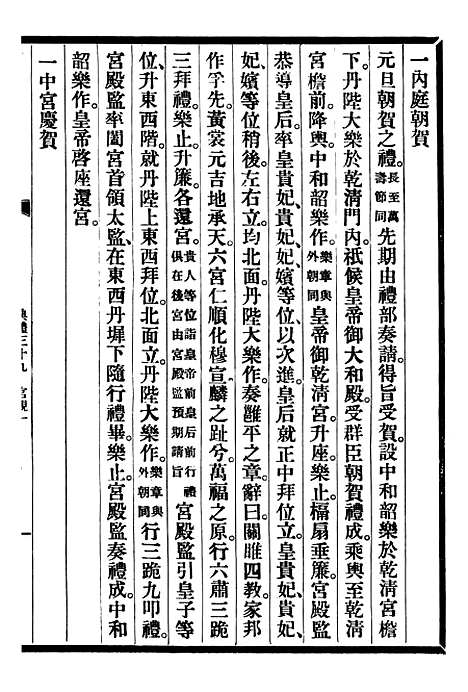 一內庭朝賀
元旦朝賀之禮。長至萬壽節同先期由禮部奏請得旨受賀設中和韶樂於乾清宮檐
下。丹陛大樂於乾清門內。祇候皇帝御太和殿受群臣朝賀禮成。乘輿至乾清
宮檐前。降輿。中和韶樂作。樂章與外朝同皇帝御乾清宮。升座樂止。槅扇垂簾。宮殿監
恭導皇后。率皇貴妃、貴妃、妃、嬪等位。以次進。皇后就正中拜位立。皇貴妃、貴妃、
妃、嬪等位稍後。左右立。均北面。丹陛大樂作。奏雝平之章。辭曰。關雎四教。家邦
作孚先。黃裳元吉地承天。六宮仁順化穆宣。麟之趾兮。萬福之原。行六肅三跪
三拜禮。樂止。升簾。各還宮。貴人等位詣皇帝前皇后前行禮俱在後宮由宮殿監預期請旨宮殿監引皇子等
位。升東西階。就丹陛上東西拜位。北面立。丹陛大樂作。樂章與外朝同行三跪九叩禮。
宮殿監率闔宮首領太監。在東西丹墀下隨行禮畢。樂止。宮殿監奏禮成。中和
韶樂作。皇帝啓座還宮。
一中宮慶賀
典禮三十九　宮規一
一